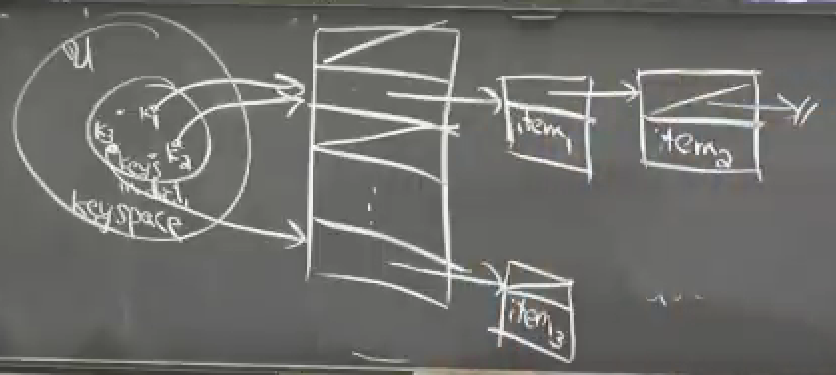 U
k1
k3
k2
keys
in dict,
key space
item1
item2
item3
...